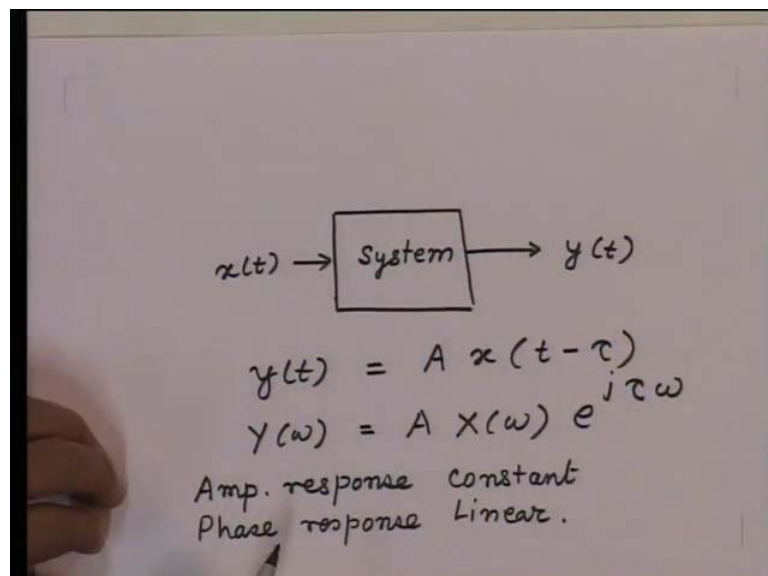 x(t) → System → y(t)
y(t) = A x(t - τ)
Y(ω) = A X(ω) e^{iτω}
Amp. response constant
Phase response Linear.